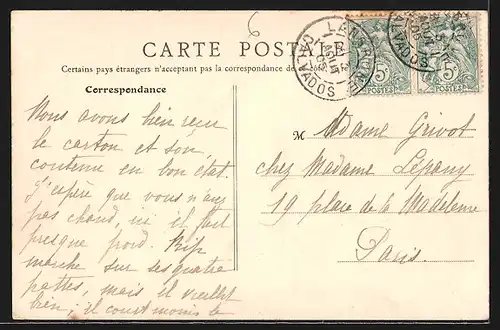 6
CARTE POSTALE
Certains pays étrangers n'acceptant pas la correspondance
Correspondance
Nous avons bien reçu
le carton et son
contenu en bon état.
J'espère que vous n'avez
pas chaud, ici il fait
presque froid. Rip
marche sur ses quatre
pattes, mais il vieillit
bien; il court moins le
M adame Grivot
chez Madame Lépany
19 place de la Madeleine
Paris.
CALVADOS
5c 5c
POSTES POSTES